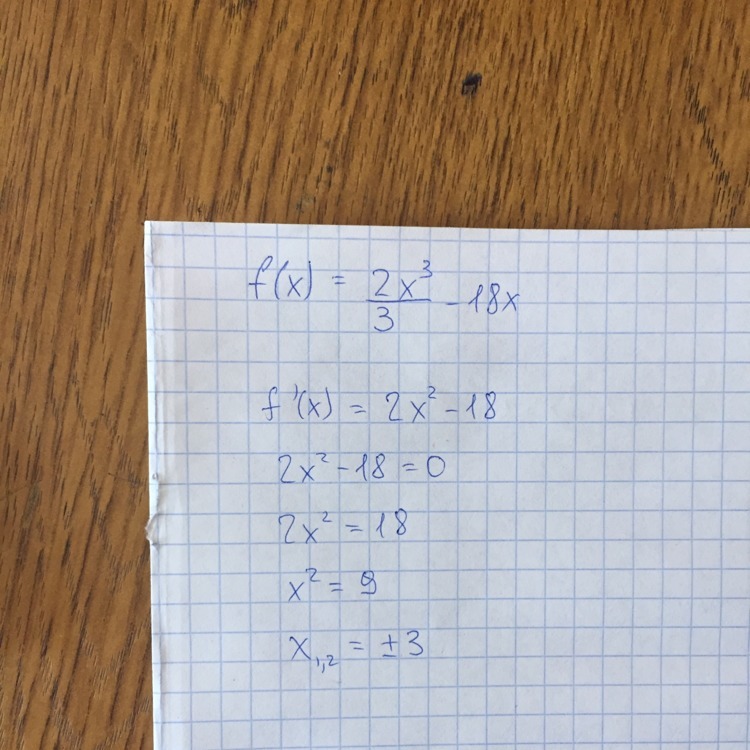 f(x) = 2x³/3 - 18x
f'(x) = 2x² - 18
2x² - 18 = 0
2x² = 18
x² = 9
x₁,₂ = ±3